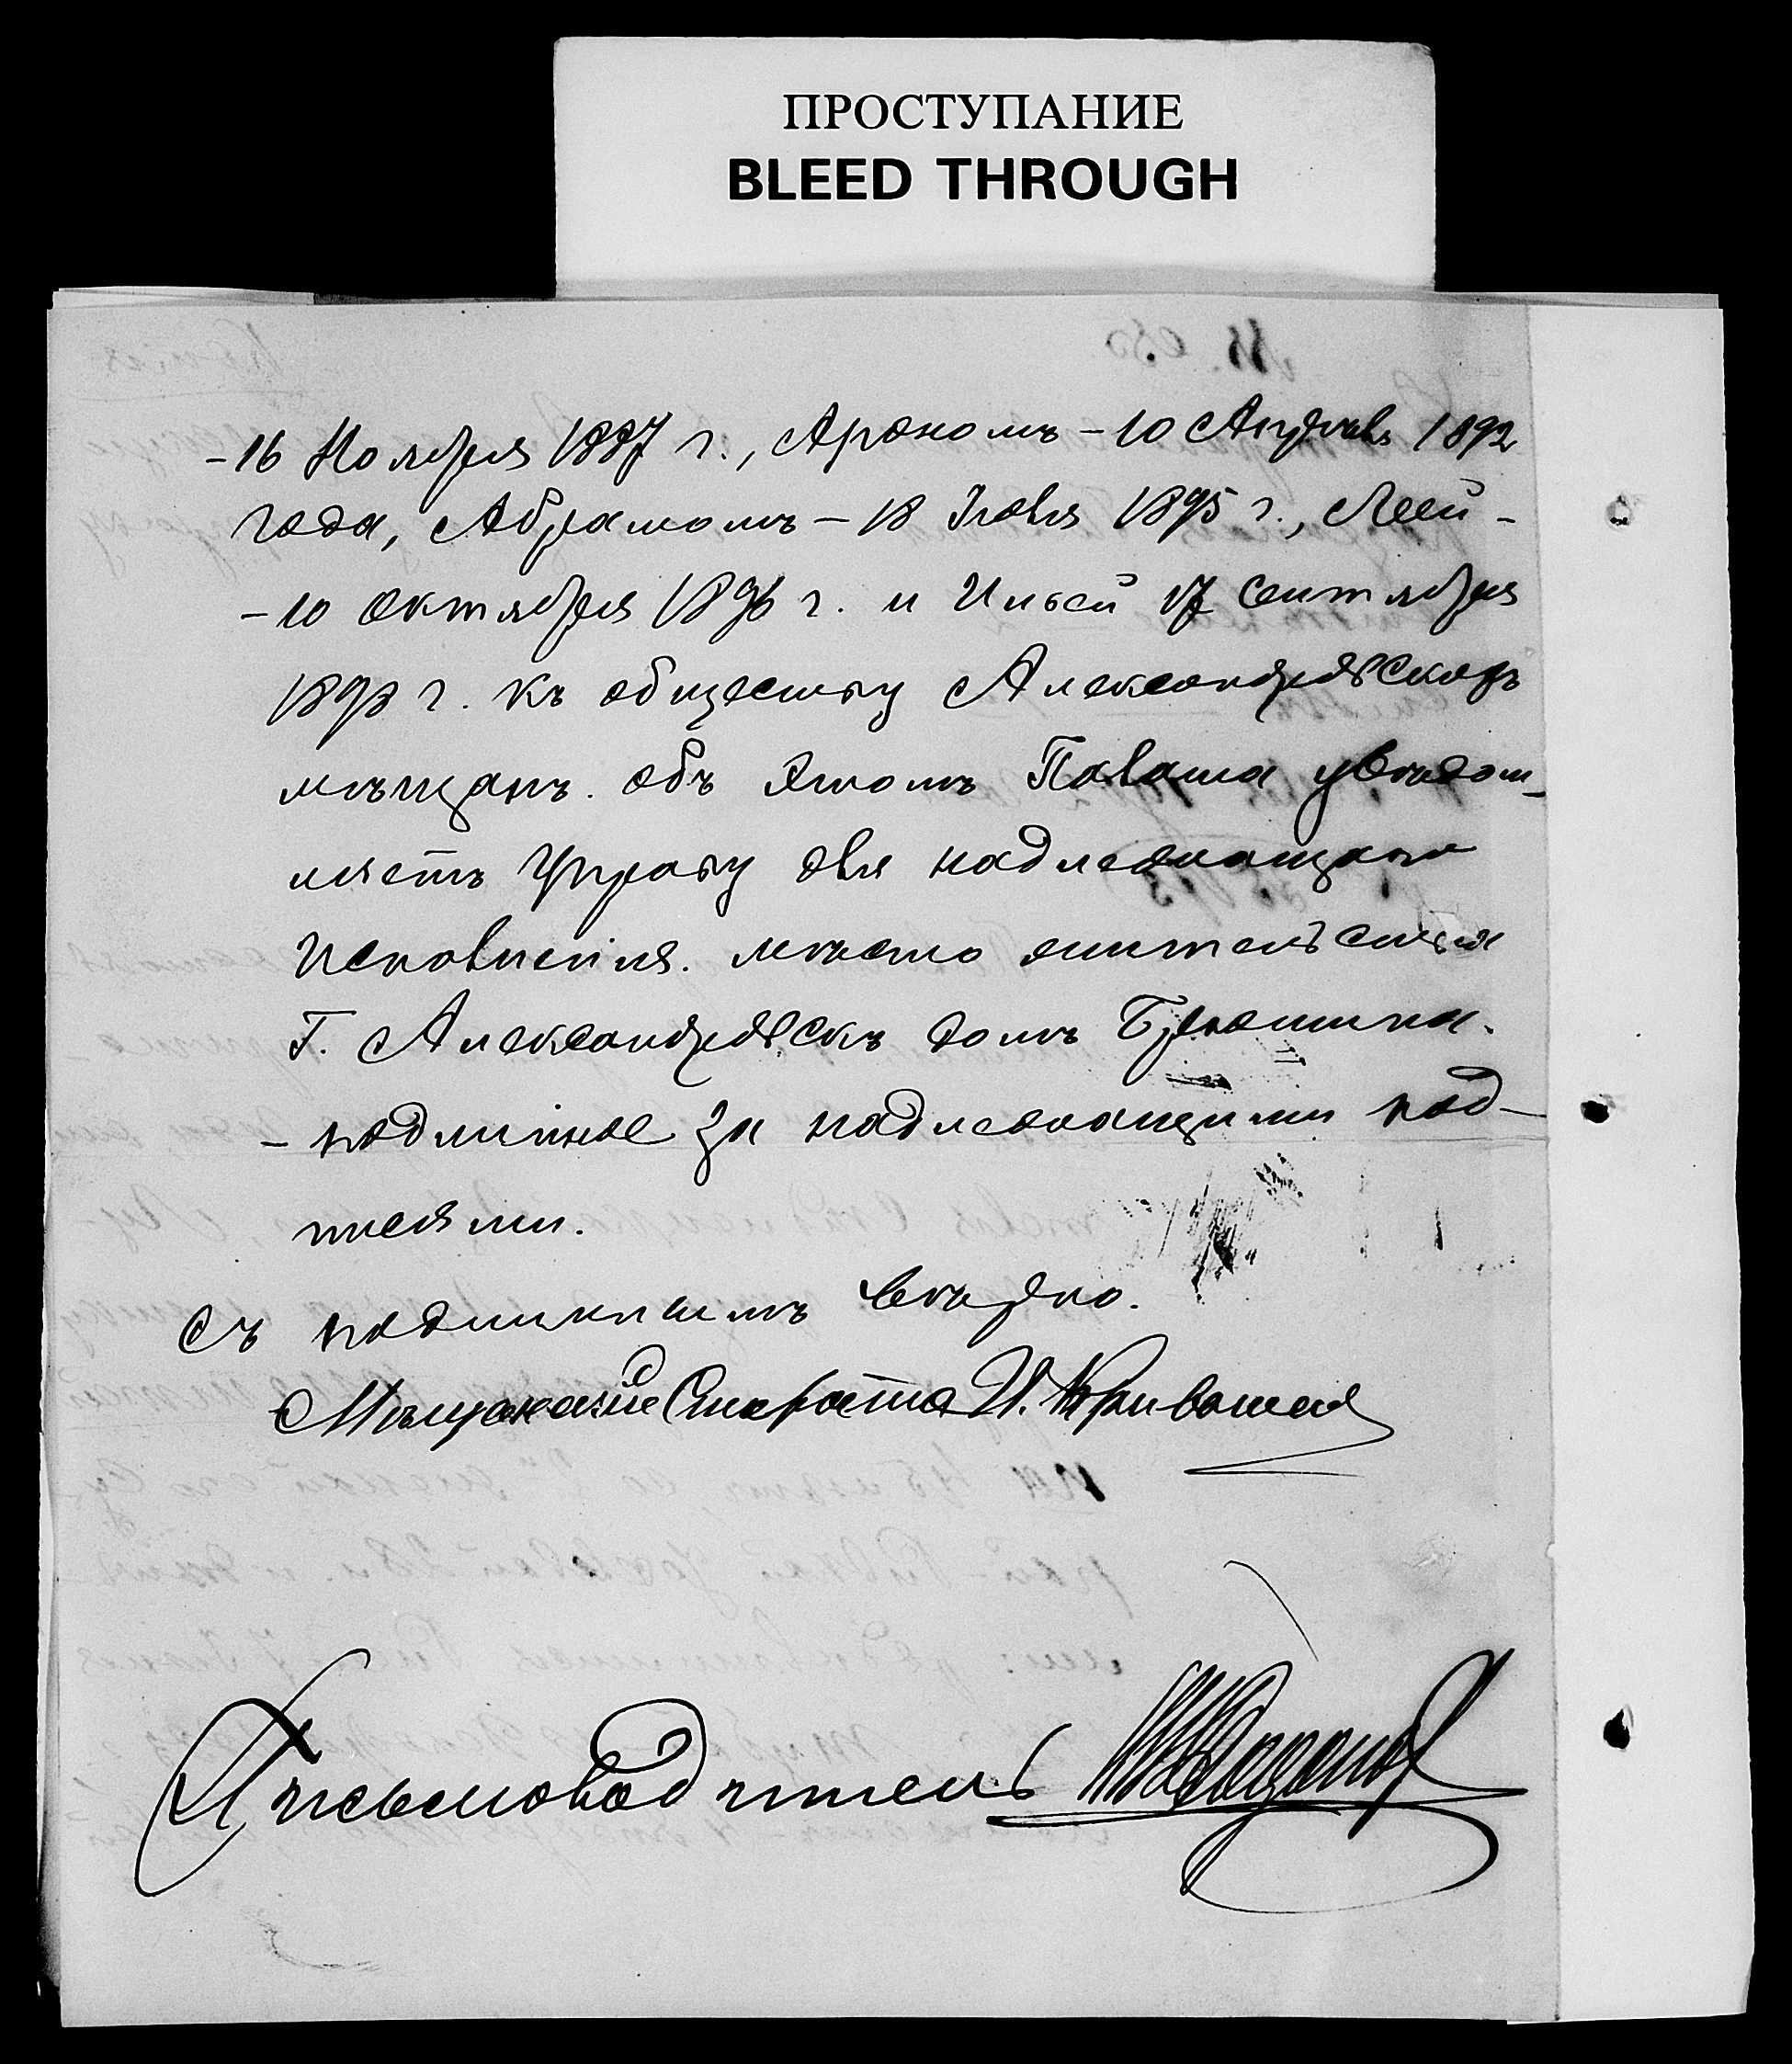 ПРОСТУПАНИЕ
BLEED THROUGH
-16 Ноября 1887 г., Арономъ - 10 Апрѣля 1892
года, Абрамомъ - 18 Іюля 1895 г., Леей -
- 10 октября 1896 г. и Ильей 17 сентября
1898 г. къ обществу Александровскихъ
мѣщанъ. объ этомъ Палата увѣдом-
ляетъ Управу для надлежащаго
исполненія. мѣсто жительства
Г. Александровскъ домъ
- подлинное за надлежащими под-
писями.
Съ подлиннымъ вѣрно.
Мѣщанскій Староста И. Кривошея
Письмоводитель